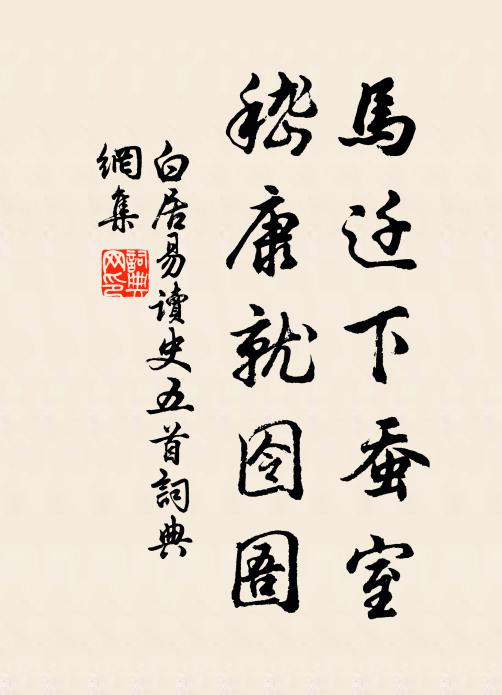 馬迁下蚕室
嵇康就囹圄
白居易讀史五首詞典
網集
詞典
网印